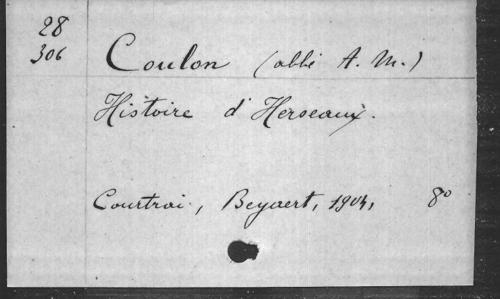 28
306
Coulon (abbé A. M.)
Histoire d'Herseaux.
Courtrai, Beyaert, 1904, 8°